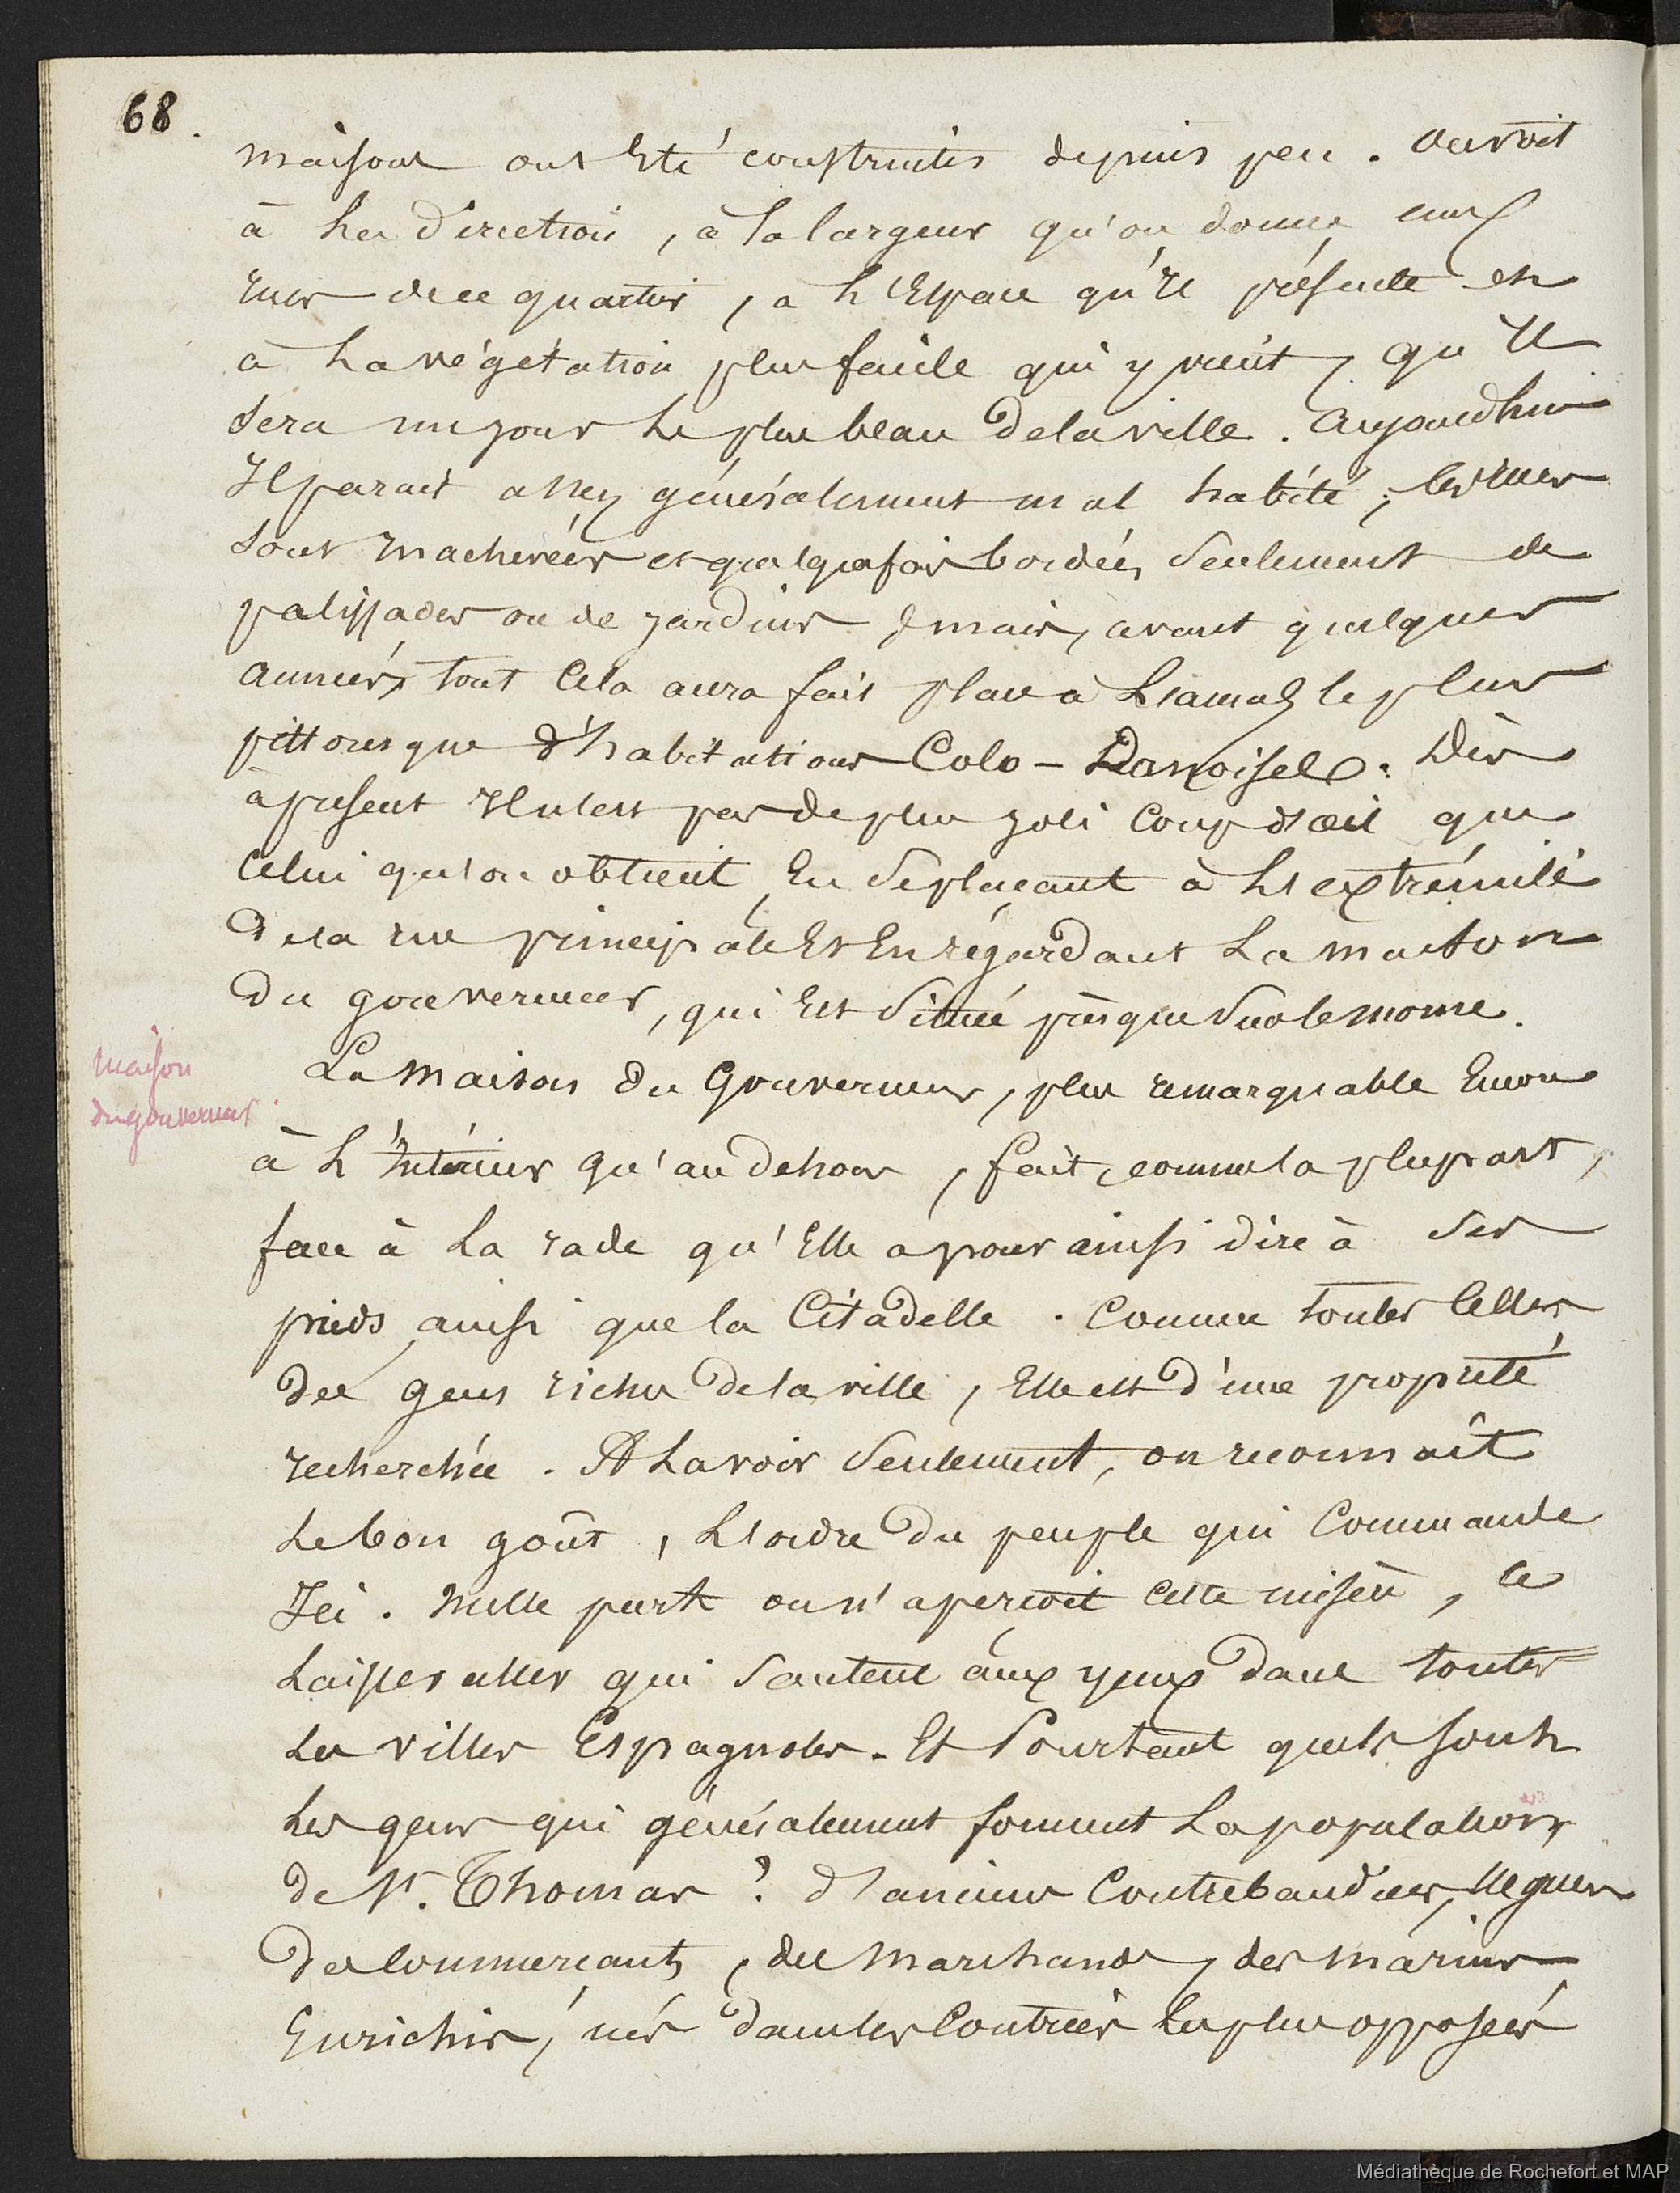 68.
maisons ont Eté construites depuis peu. On voit
à La direction, à la largeur qu'on donne aux
rues de ce quartier, à L'Espace qu'Il présente et
à La végétation plus facile qui y vient, qu'Il
sera un jour Le plus beau de la ville. Aujourdhui
Il parait assez généralement mal habité; les rues
sont Inachevées et quelquefois bordées Seulement de
palissades ou de jardins; mais, avant quelques
années, tout Cela aura fait place à L'amas le plus
pittoresque d'habitations Colo-Danoises. Dès
à présent Il n'est pas de plus joli Coup d'œil que
Celui qu'on obtient, En Se plaçant à L'extrémité
de la rue principale Et En régardant La maison
du gouverneur, qui Est Située présque Sur le morne.
Maison
du gouverneur.
La Maison du Gouverneur, plus remarquable Encore
à L'Intérieur qu'au dehors, fait, comme la plupart,
face à La rade qu'Elle a pour ainsi dire à Ses
pieds, ainsi que la Citadelle. Comme toutes Celles
des gens riches de la ville, Elle est d'une propreté
recherchée. A La voir Seulement, on reconnaît
Le bon goût, L'ordre du peuple qui Commande
Ici. Nulle part on n'aperçoit Cette misère, Ce
Laisser aller qui Sautent aux yeux dans toutes
Les villes Espagnoles. Et Pourtant quels sont
Les gens qui généralement forment La population
de St. Thomas? d'anciens Contrebandiers,
des Commerçants, des Marchands, des marins
Enrichis, nés dans les Contrées Les plus opposées
Médiathèque de Rochefort et MAP